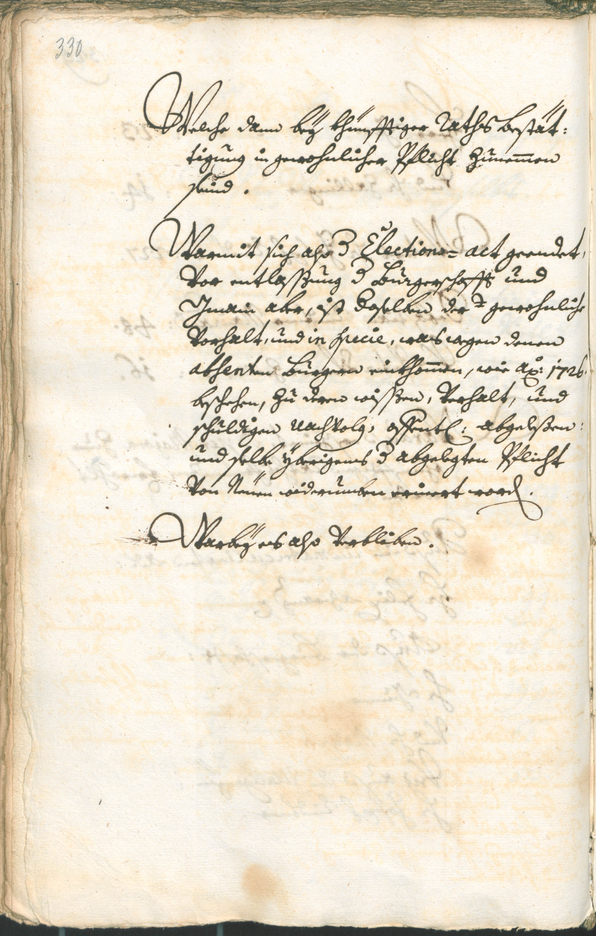 330
Welche dann bey khünfftiger Raths bestät:
tigung in gewohnlicher Pflicht Zunemmen
seind.
Warmit sich also d Elections= act geendet,
Vor entlassung d Burgerschafft und
Gmain aber, ist daselben der gewohnliche
Vorhalt, und in specie, was wegen denen
absenten Burgern einkhommen, wie a͠o: 1726.
beschehen, zu deren wissen, Verhalt, und
schuldigen Nachvolg, offentl: abgelesen:
und selbe yberigens d abgelegten Pflicht
von Neuen widerumben erinert word.
Warbey es also Verbliben.